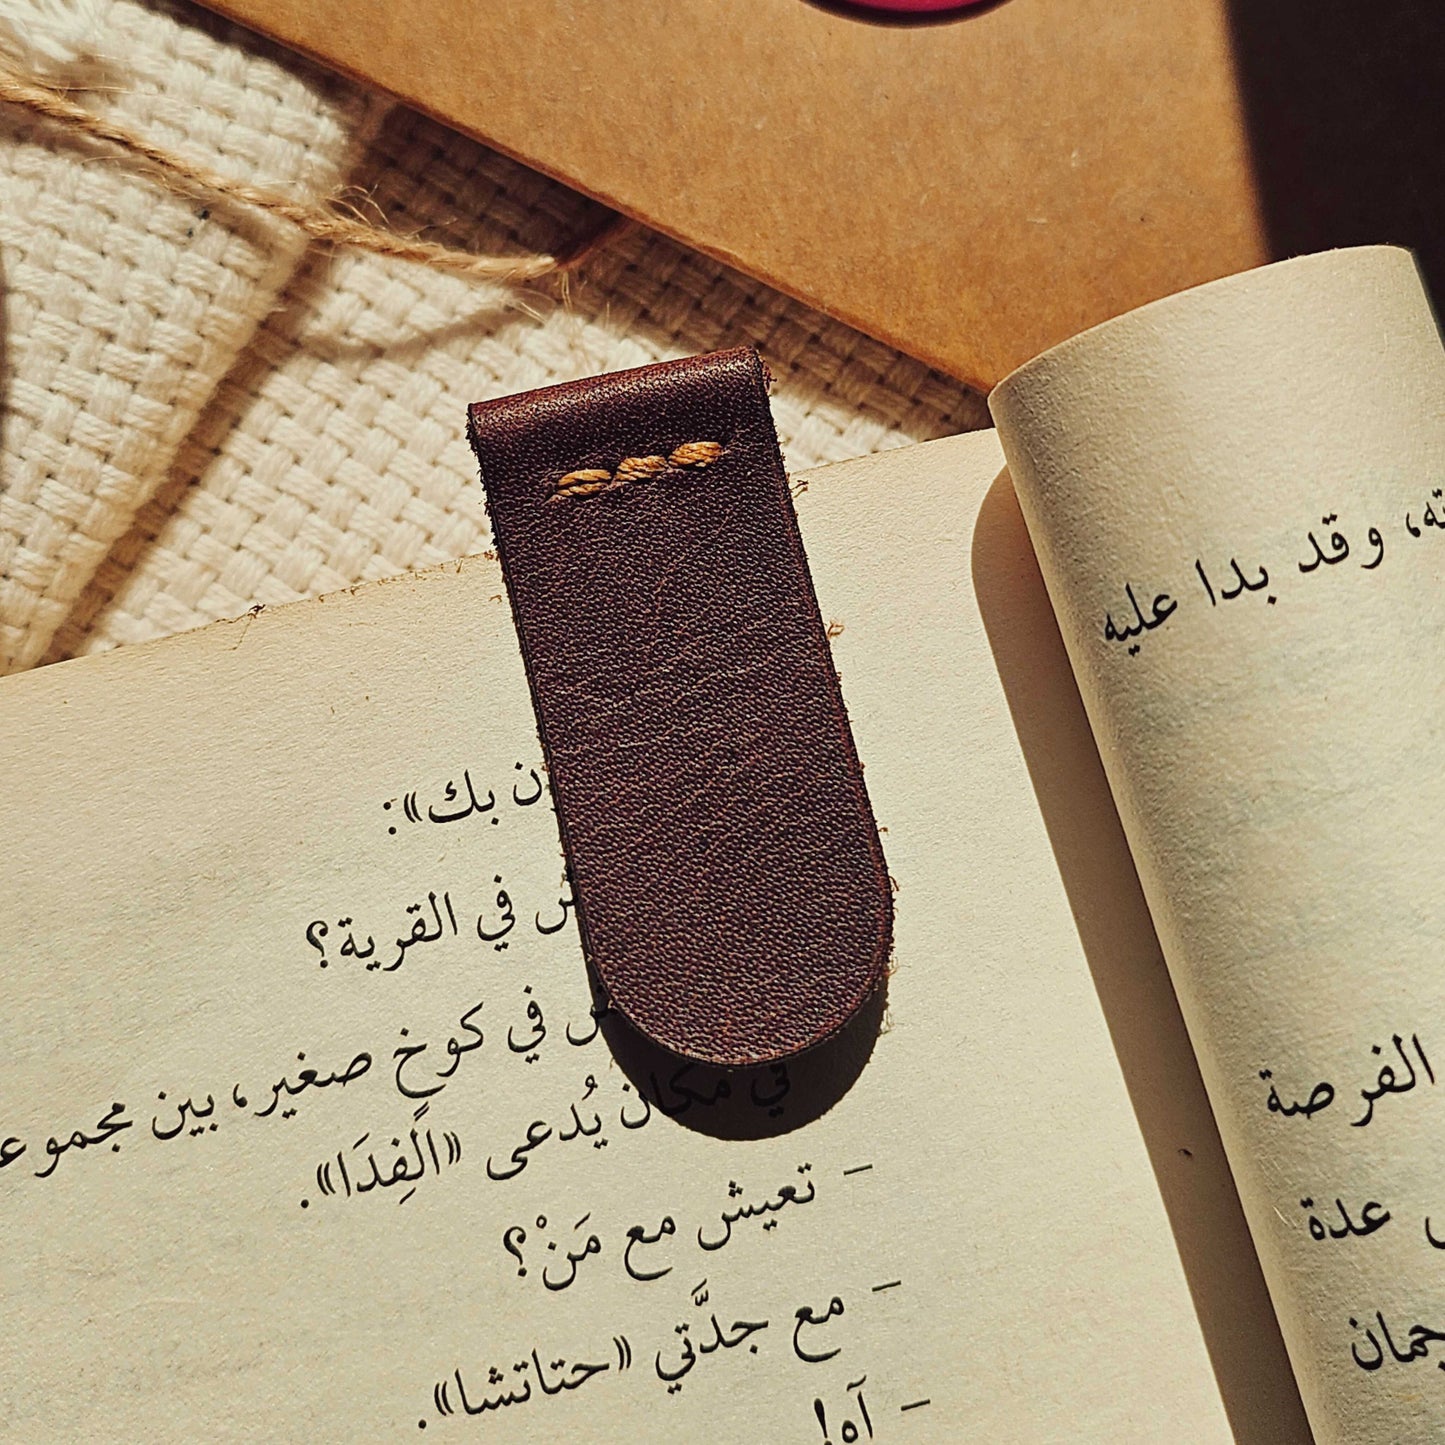 ن بك»:
في القرية؟
في كوخ صغير، بين مجموعـ
في مكان يُدعى «الفِدَا».
– تعيش مع مَنْ؟
– مع جدَّتي «حتاتشا».
– آه!
ـته، وقد بدا عليه
الفرصة
عدة
جمان